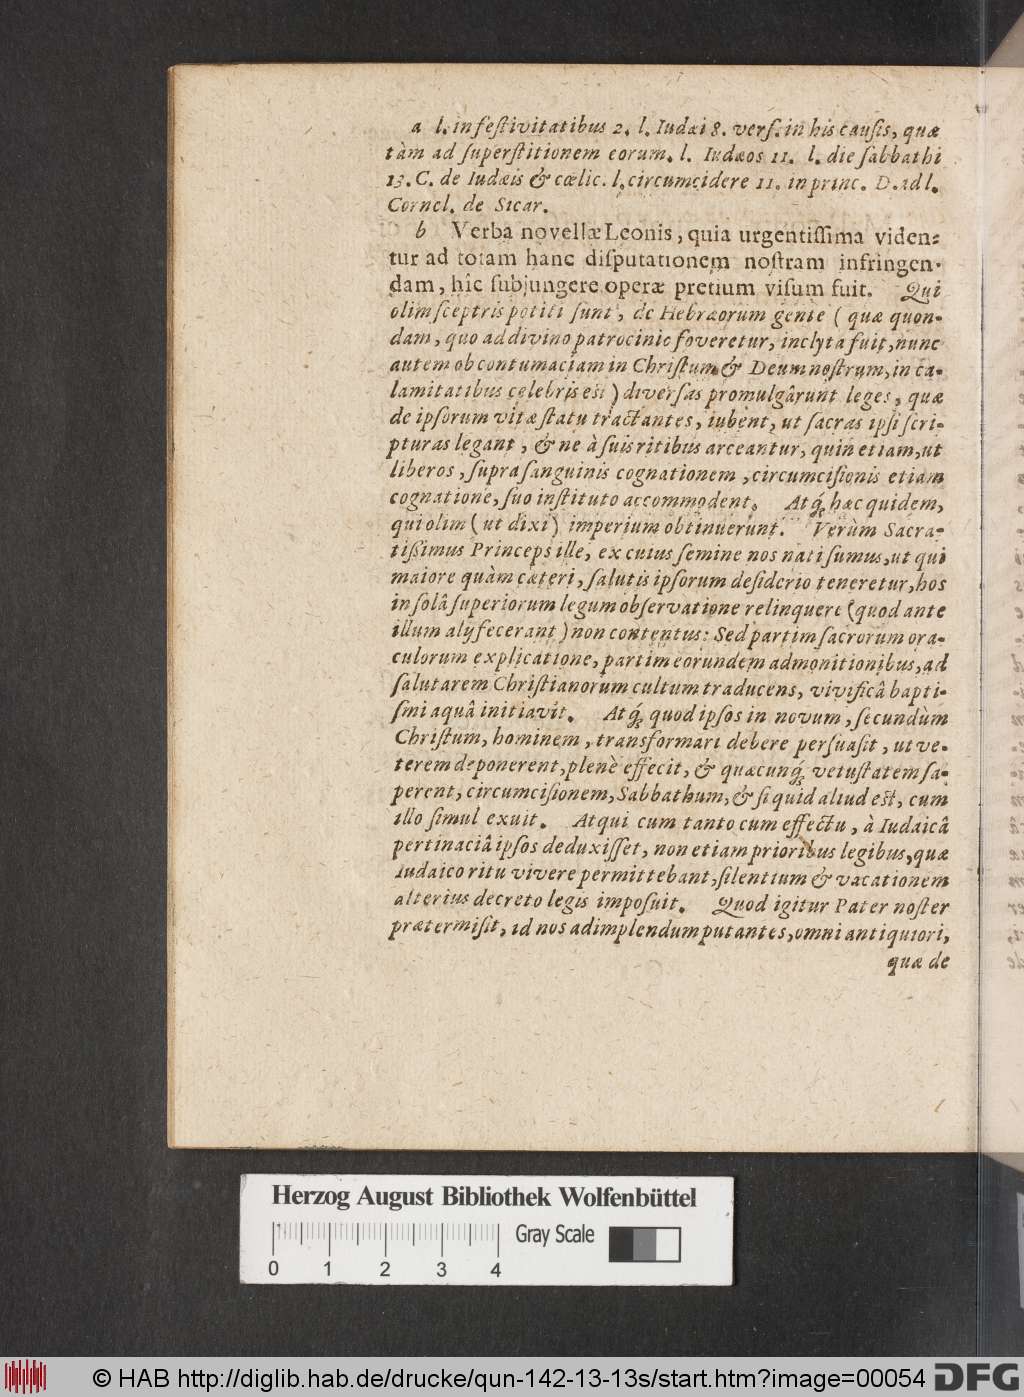 a l. in feſtivitatibus 2. l. Iudæi 8. verſ. in his cauſis, quæ
tàm ad ſuperſtitionem eorum. l. Iudæos 11. l. die ſabbathi
13. C. de Iudæis & cœlic. l. circumcidere 11. in princ. D. ad l.
Cornel. de Sicar.
b Verba novellæ Leonis, quia urgentiſſima viden-
tur ad totam hanc diſputationem noſtram infringen-
dam, hîc ſubjungere operæ pretium viſum fuit. Qui
olim ſceptris potiti ſunt, de Hebræorum gente ( quæ quon-
dam, quo ad divino patrocinio foveretur, inclyta fuit, nunc
autem ob contumaciam in Chriſtum & Deum noſtrum, in ca-
lamitatibus celebris est ) diverſas promulgârunt leges, quæ
de ipſorum vitæ ſtatu tractantes, iubent, ut ſacras ipſi ſcri-
pturas legant, & ne à ſuis ritibus arceantur, quin etiam, ut
liberos, ſupra ſanguinis cognationem, circumciſionis etiam
cognatione, ſuo inſtituto accommodent. Atq́; hæc quidem,
qui olim ( ut dixi ) imperium obtinuerunt. Verùm Sacra-
tißimus Princeps ille, ex cuius ſemine nos nati ſumus, ut qui
maiore quàm cæteri, ſalutis ipſorum deſiderio teneretur, hos
in ſolâ ſuperiorum legum obſervatione relinquere (quod ante
illum alij fecerant ) non contentus: Sed partim ſacrorum ora-
culorum explicatione, partim eorundem admonitionibus, ad
ſalutarem Chriſtianorum cultum traducens, vivificâ bapti-
ſmi aquâ initiavit. Atq́; quod ipſos in novum, ſecundùm
Chriſtum, hominem, transformari debere perſuaſit, ut ve-
terem deponerent, plenè effecit, & quæcunq́; vetuſtatem ſa-
perent, circumciſionem, Sabbathum, & ſi quid aliud est, cum
illo ſimul exuit. Atqui cum tanto cum effectu, à Iudaicâ
pertinaciâ ipſos deduxiſſet, non etiam prioribus legibus, quæ
Iudaico ritu vivere permittebant, ſilentium & vacationem
alterius decreto legis impoſuit. Quod igitur Pater noſter
prætermiſit, id nos adimplendum putantes, omni antiquiori,
quæ de
Herzog August Bibliothek Wolfenbüttel
Gray Scale
0 1 2 3 4
© HAB http://diglib.hab.de/drucke/qun-142-13-13s/start.htm?image=00054
DFG